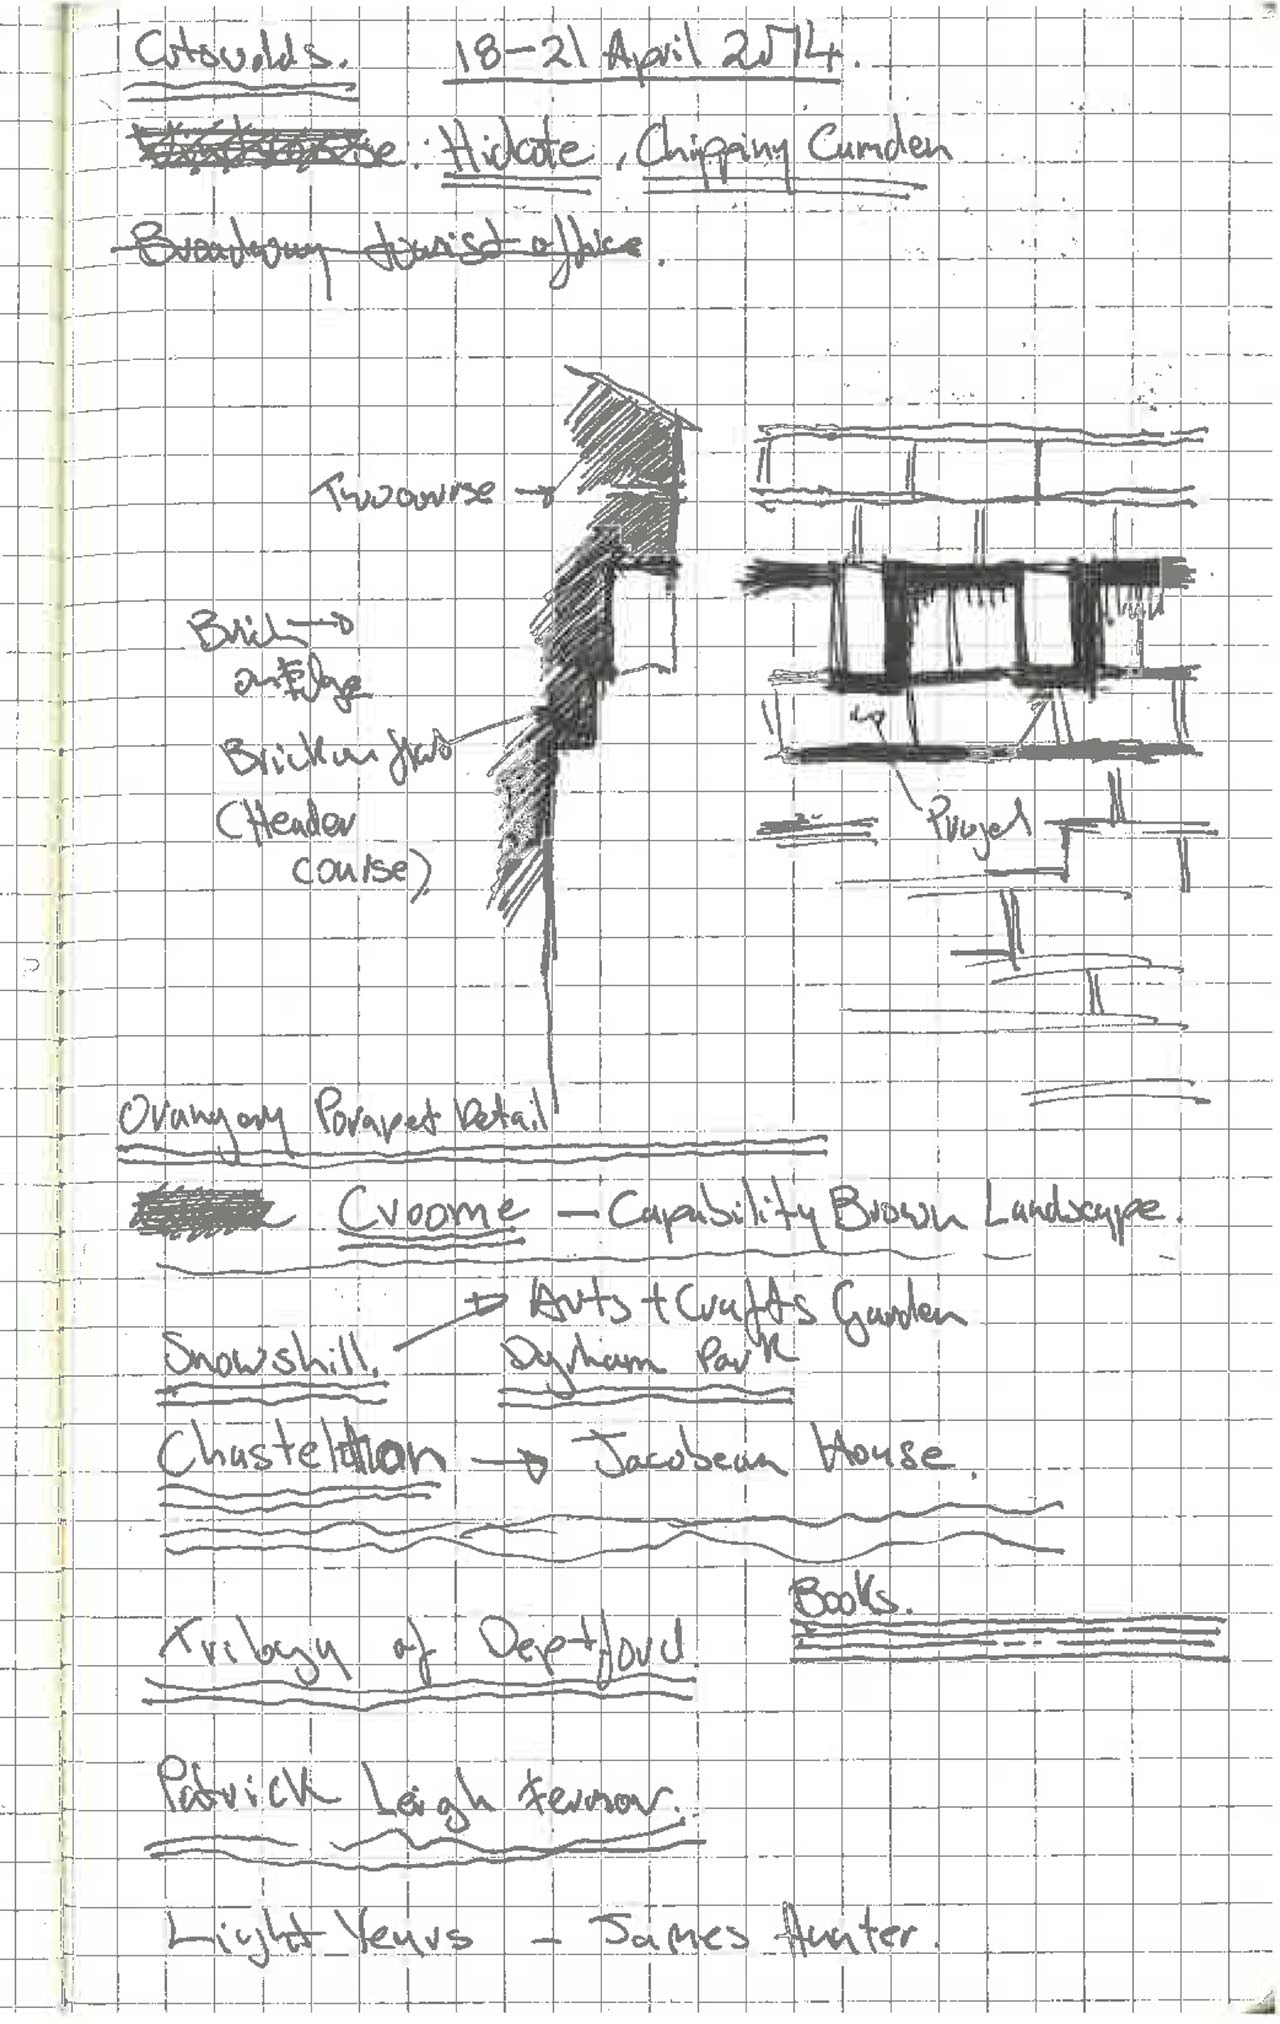 Cotswolds. 18-21 April 2014.
: Hidcote, Chipping Camden
Broadway tourist office.
Two course
Brick
on edge
Brick on flat
(Header
course)
Project
Orangery Parapet Detail
Croome - Capability Brown Landscape.
Arts + Crafts Garden
Snowshill. Dyrham Park
Chastelton → Jacobean House.
Books.
Trilogy of Deptford
Patrick Leigh Fermor.
Light Years - James Hunter.